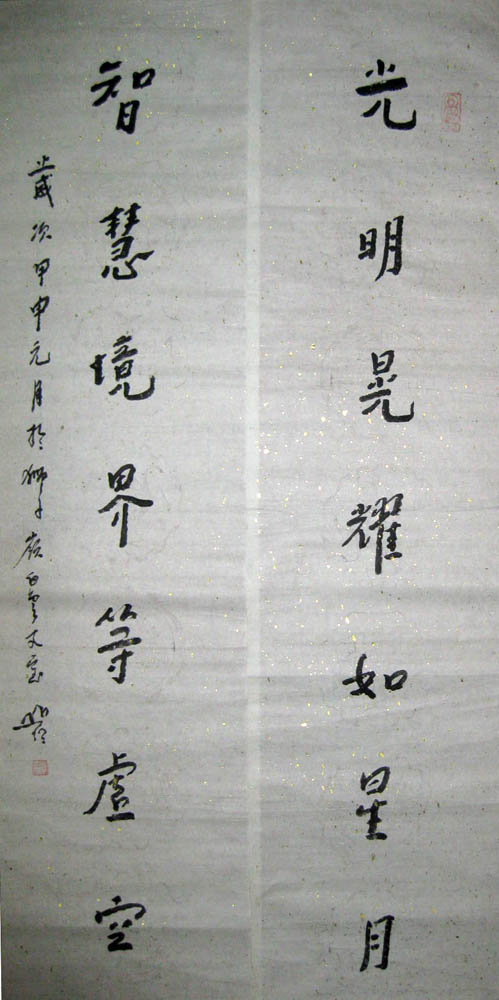 光明晃耀如星月
智慧境界等虛空
歲次甲申元月於獅子嶺白雲丈室